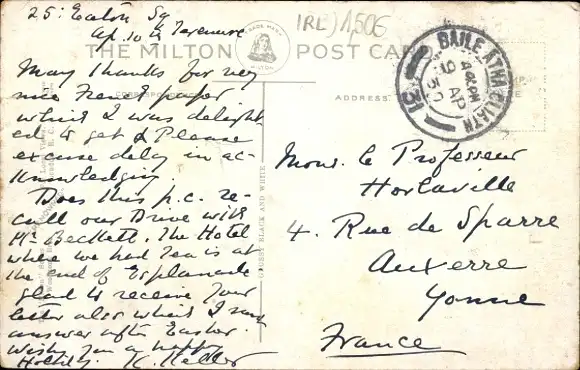 25: Eaton Sq
Ap. 10th Terenure
(IRL) 1,50€
THE MILTON POST CARD
TRADE MARK
MILTON
BAILE ÁTHA CLIATH
9 AP
30
31
ADDRESS
GLOSSY BLACK AND WHITE
Many thanks for very
nice French paper
which I was delight
ed to get & Please
excuse delay in ac-
knowledging.
Does this p.c. re-
call our Drive with
Mr Beckett. The Hotel
where we had Tea is at
the end of Esplanade
glad to receive your
letter also which I may
answer after Easter.
Wish you a happy
Holiday. K. Keller
Mons. le Professeur
Hortaville
4. Rue de Sparre
Auxerre
Yonne
France